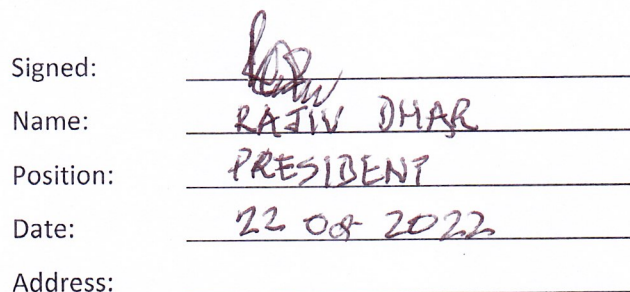 Signed:
Name: RAJIV DHAR
Position: PRESIDENT
Date: 22 Oct 2022
Address: